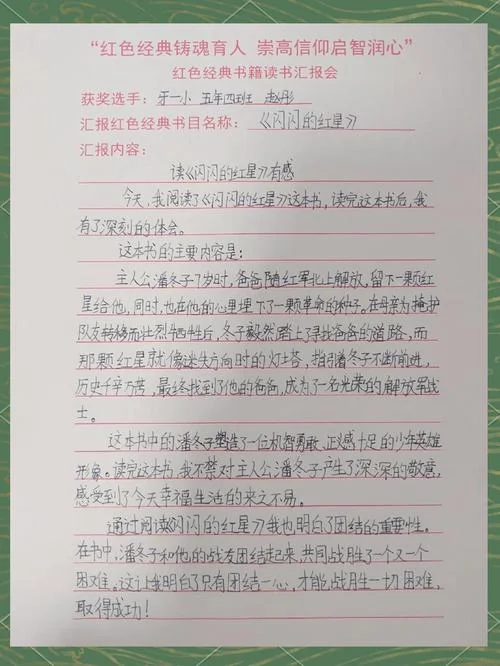 “红色经典铸魂育人 崇高信仰启智润心”
红色经典书籍读书汇报会
获奖选手：牙一小 五年四班 赵彤
汇报红色经典书目名称：《闪闪的红星》
汇报内容：
读《闪闪的红星》有感
今天，我阅读了《闪闪的红星》这本书，读完这本书后，我
有了深刻的体会。
这本书的主要内容是：
主人公潘冬子7岁时，爸爸随红军北上解放，留下一颗红
星给他，同时，也在他的心里埋下了一颗革命的种子。在母亲为掩护
队友转移而壮烈牺牲后，冬子毅然踏上了寻找爸爸的道路，而
那颗红星就像迷失方向时的灯塔，指引着冬子不断前进，
历史千辛万苦，最终找到了他的爸爸，成为了一名光荣的解放军战
士。
这本书中的潘冬子塑造了一位机智勇敢、正义感十足的少年英雄
形象。读完这本书，我不禁对主人公潘冬子产生了深深的敬意，
感受到了今天幸福生活的来之不易。
通过阅读《闪闪的红星》我也明白了团结的重要性。
在书中，潘冬子和他的战友团结起来，共同战胜了一个又一个
困难。这让我明白了只有团结一心，才能战胜一切困难，
取得成功！